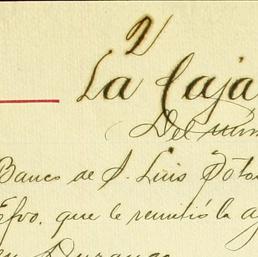 2
La Caja
Del
Banco de S. Luis Potos
Efvo. que le remitió la a
en Durango